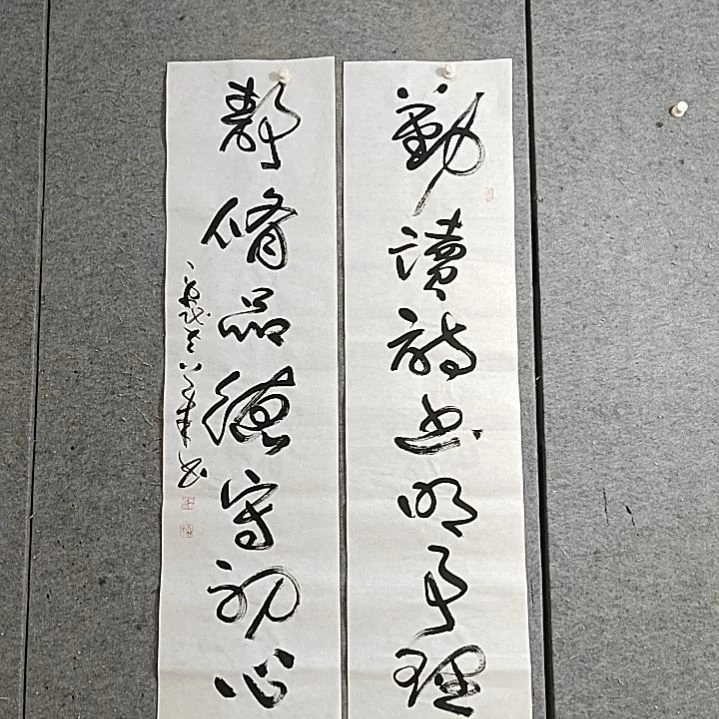 勤讀詩書明事理
靜脩品德守初心